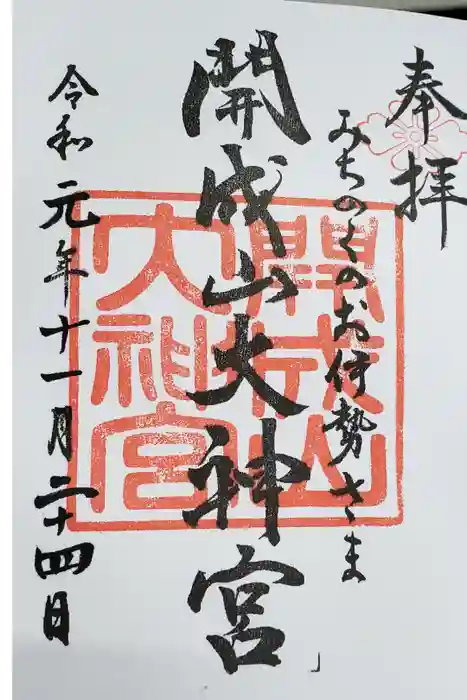 奉拝
みちのくのお伊勢さま
開成山大神宮
令和元年十一月二十四日
開成山大神宮